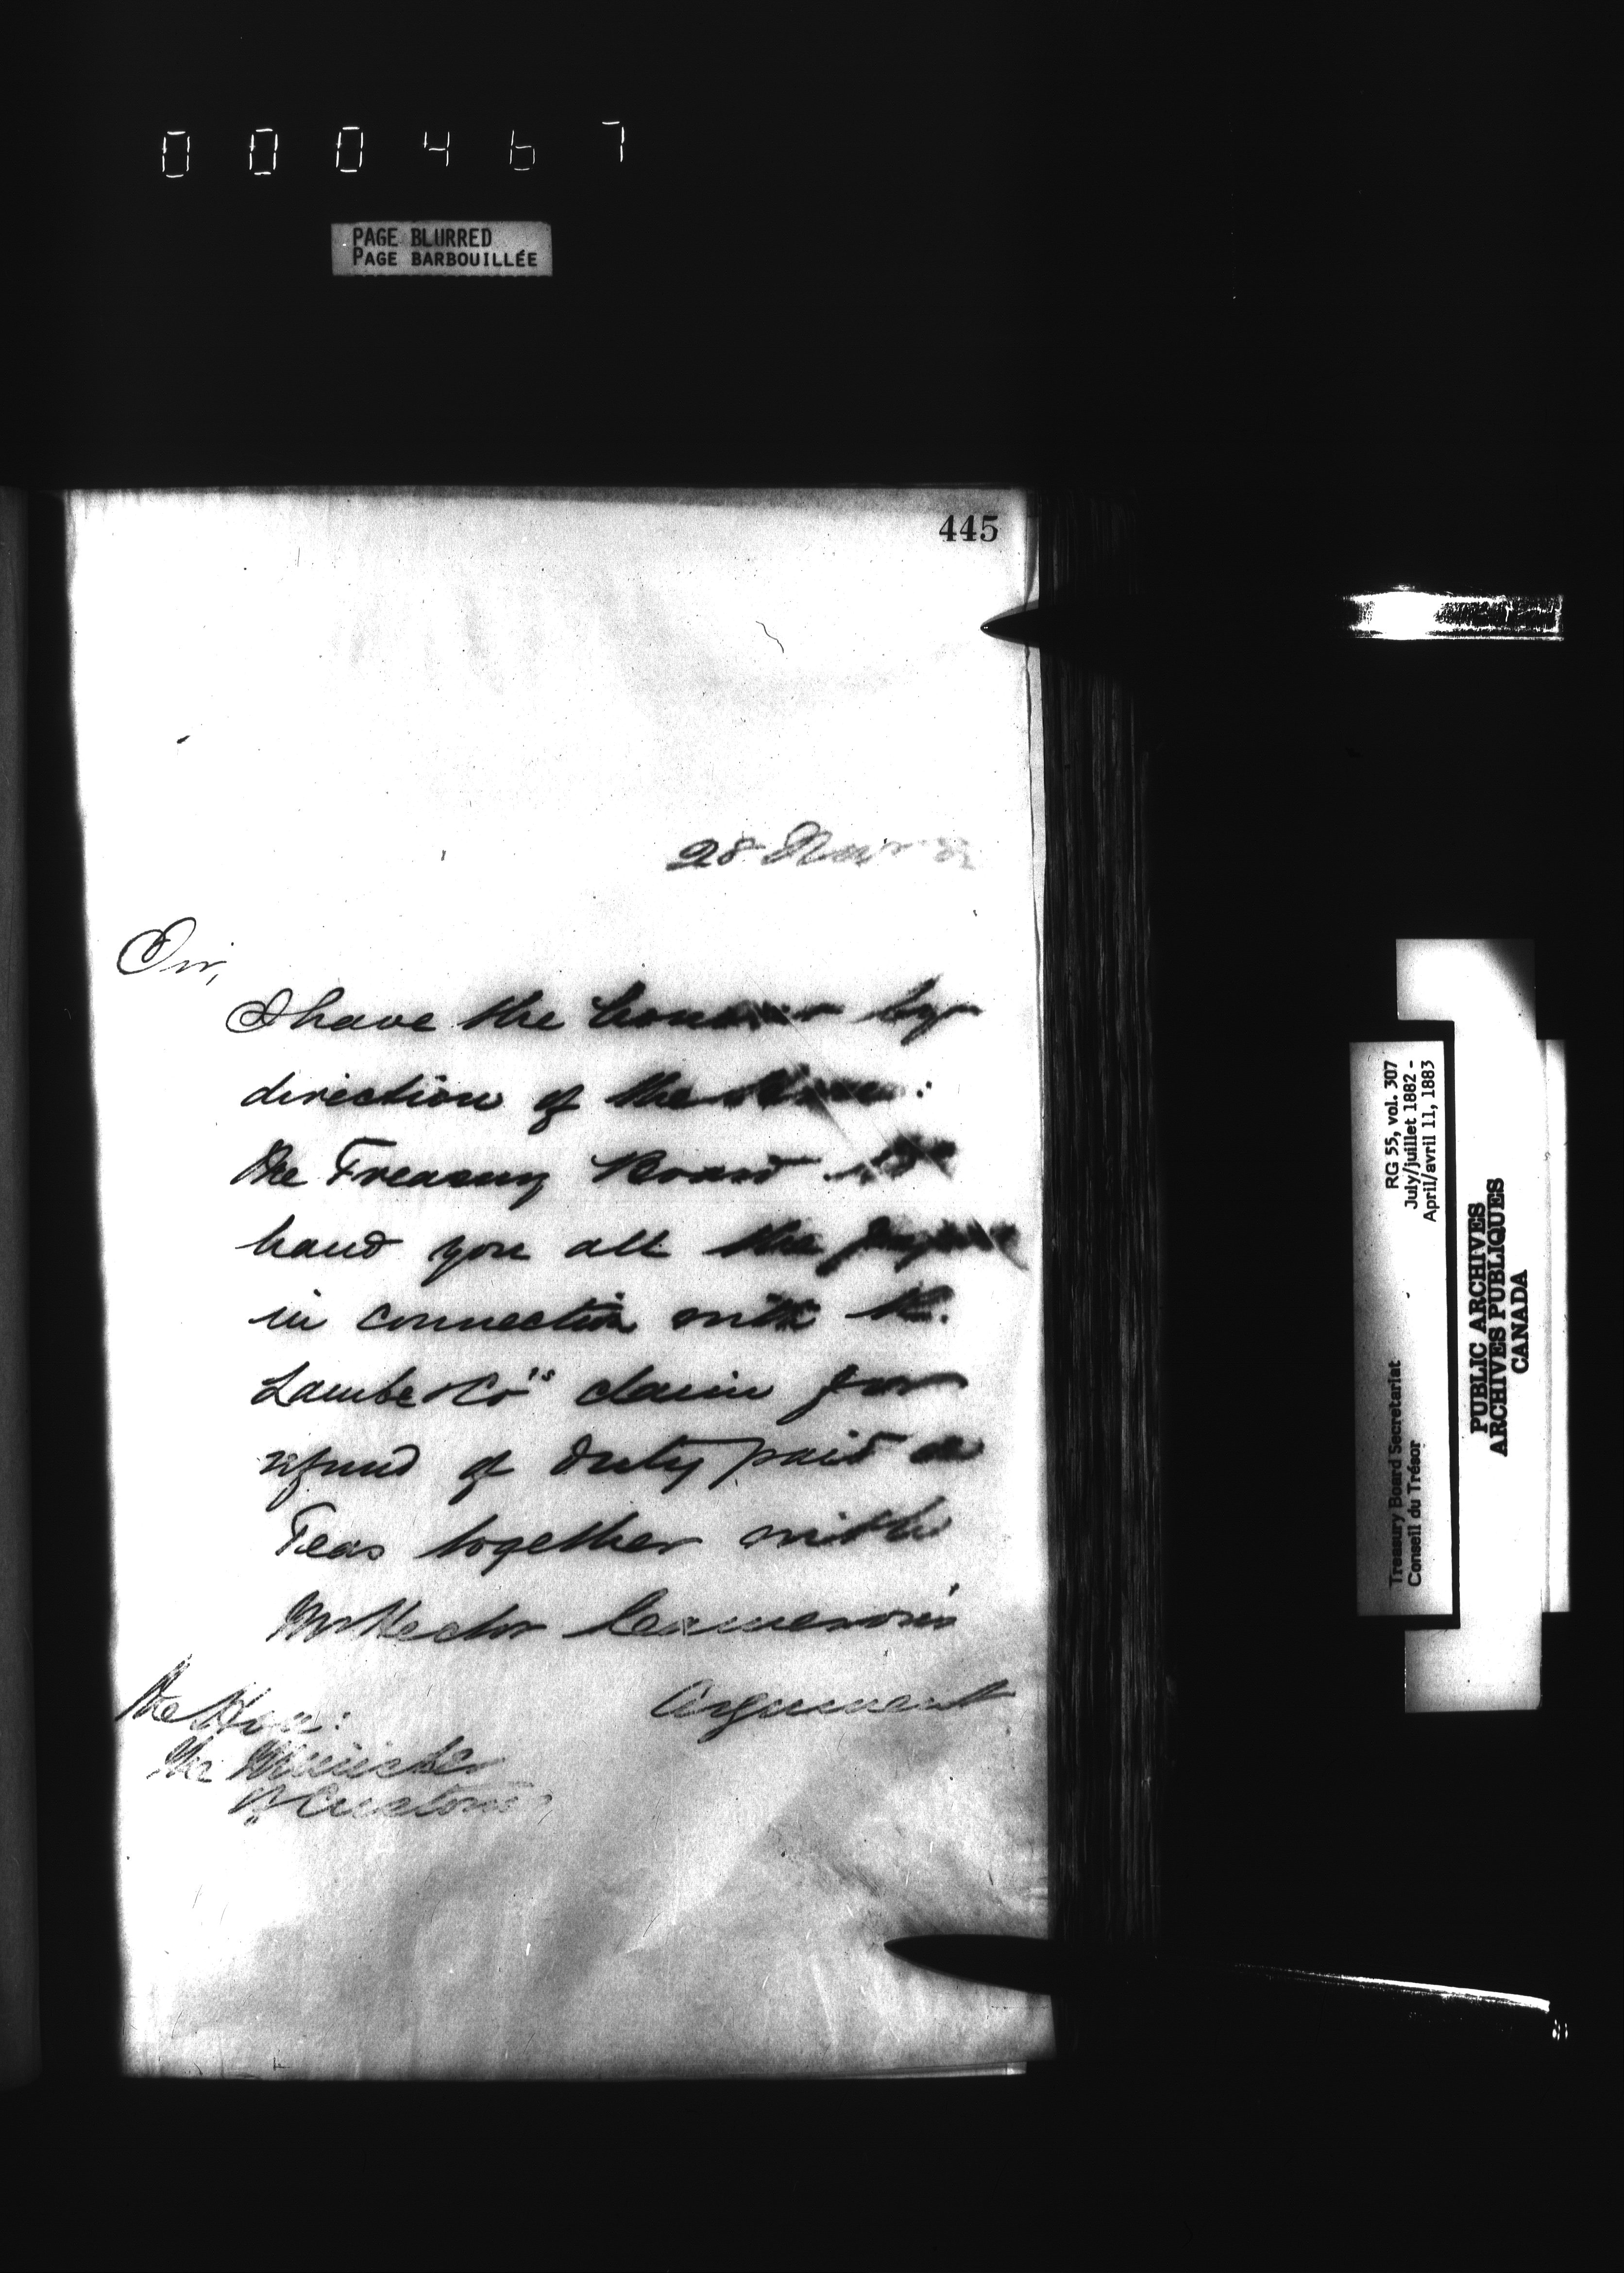 000467
PAGE BLURRED
PAGE BARBOUILLÉE
445
28
Sir,
I have the honour by
direction of the
the Treasury Board to
hand you all the papers
in connection with
Lambe & Co's claim for
refund of duty paid on
Teas together with
Mr Hector Cameron's
Argument
The Hon:
The Minister
of Customs
RG 55, vol. 307
July/juillet 1882 -
April/avril 11, 1883
Treasury Board Secretariat
Conseil du Trésor
PUBLIC ARCHIVES
ARCHIVES PUBLIQUES
CANADA